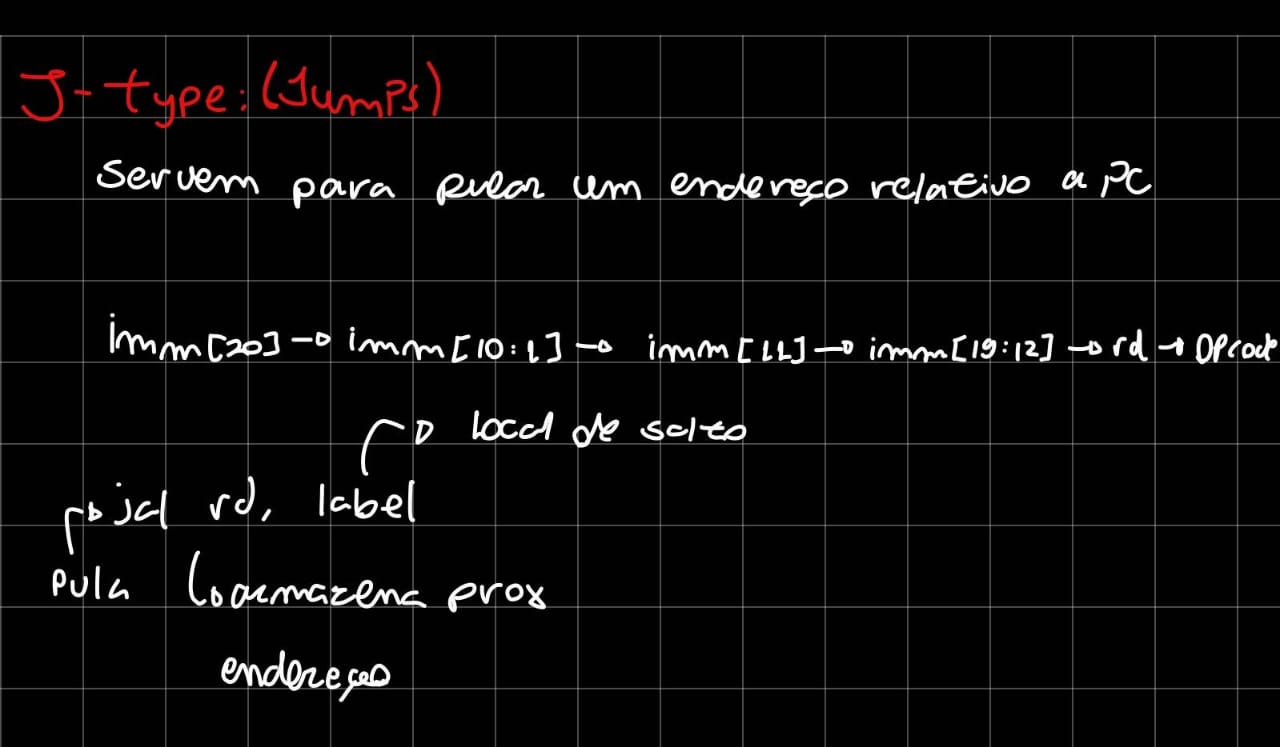 J-type: (Jumps)
Servem para pular um endereço relativo a PC
imm[20] → imm[10:1] → imm[11] → imm[19:12] → rd → OPcode
→ local de salto
→ jal rd, label
Pula ↳ armazena prox
endereço